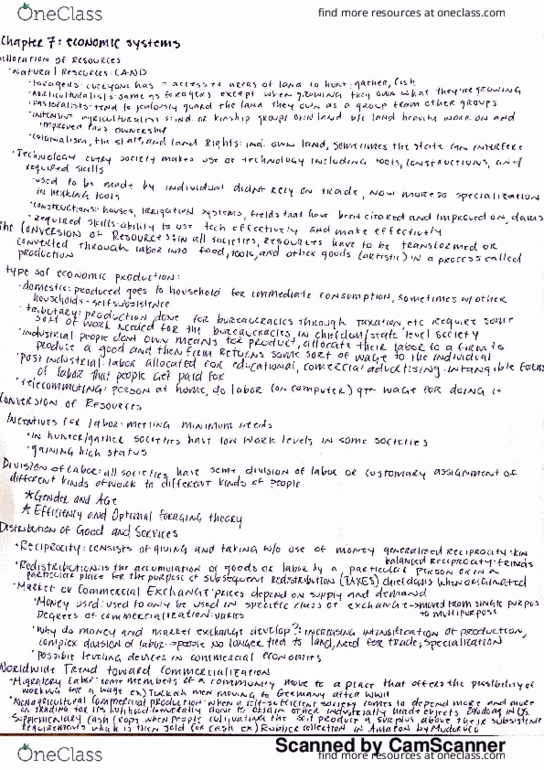 OneClass
find more resources at oneclass.com
OneClass
find more resources at oneclass.com
Chapter 7: Economic Systems
Allocation of Resources
•Natural Resources: LAND
•foragers: everyone has = access to areas of land to hunt, gather, fish
•Horticulturalists: same as foragers except when growing they own what they're growing
•Pastoralists: tend to jealously guard the land they own as a group from other groups
•intensive agriculturalists: ind. or kinship groups own land b/c land heavily work on and
improved thus ownership
•colonialism, the state, and land Rights: ind. own land, sometimes the state can interfere
•Technology every society makes use of technology including tools, constructions, and
required skills
•used to be made by individual didnt rely on trade, now more so specialization
in making tools
•constructions: houses, irrigation systems, fields that have been cleared and improved on, dams
•required skills: ability to use tech effectively and make effectively
The Conversion of Resources: in all societies, resources have to be transformed or
converted through labor into food, tools, and other goods (artistic) in a process called
production
types of economic production:
•domestic: produced goes to household for immediate consumption, sometimes w/ other
households - self subsistence
•tributary: production done for bureaucracies through taxation, etc require some
sort of work needed for the bureaucracies in chiefdom/state level society
•industrial: people dont own means to product, allocate their labor to a firm to
produce a good and then firm returns some sort of wage to the individual
•post industrial: labor allocated for educational, comercial advertising: intangible forms
of labor that people get paid for
•telecommuting: person at home, do labor (on computer) get wage for doing it
Conversion of Resources
Incentives for labor: meeting minimum needs
•in hunter/gather societies have low work levels in some societies
•gaining high status
Division of Labor: all societies have some division of labor or customary assignment of
different kinds of work to different kinds of people
*Gender and Age
*Efficiency and Optimal foraging theory
Distribution of Good and Services
•Reciprocity: consists of giving and taking w/o use of money generalized reciprocity: kin
balanced reciprocity: friends
•Redistribution is the accumulation of goods or labor by a particular person or in a
particular place for the purpose of subsequent redistribution (TAXES) chiefdoms when originated
•Market or Commercial Exchange: prices depend on supply and demand
•Money used: used to only be used in specific class or exchange → moved from single purpos
to multipurpose
Degrees of commercialization varies
•Why do money and market exchange develop?: increasing intensification of production,
complex division of labor - people no longer tied to land, need for trade, specialization
•Possible leveling devices in commercial economies
Worldwide Trend toward Commercialization
•Migratory Labor: some members of a community move to a place that offers the possibility of
working for a wage ex) Turkish men moving to Germany after WWII
•Nonagricultural Commercial production: when a self-sufficient society comes to depend more and more
on trading for its livelihood
Supplementary cash crops when people cultivating the soil produce a surplus above their subsistence
requirements which is then sold for cash ex) Rubber collection in Amazon by
Scanned by CamScanner
OneClass
find more resources at oneclass.com
OneClass
find more resources at oneclass.com